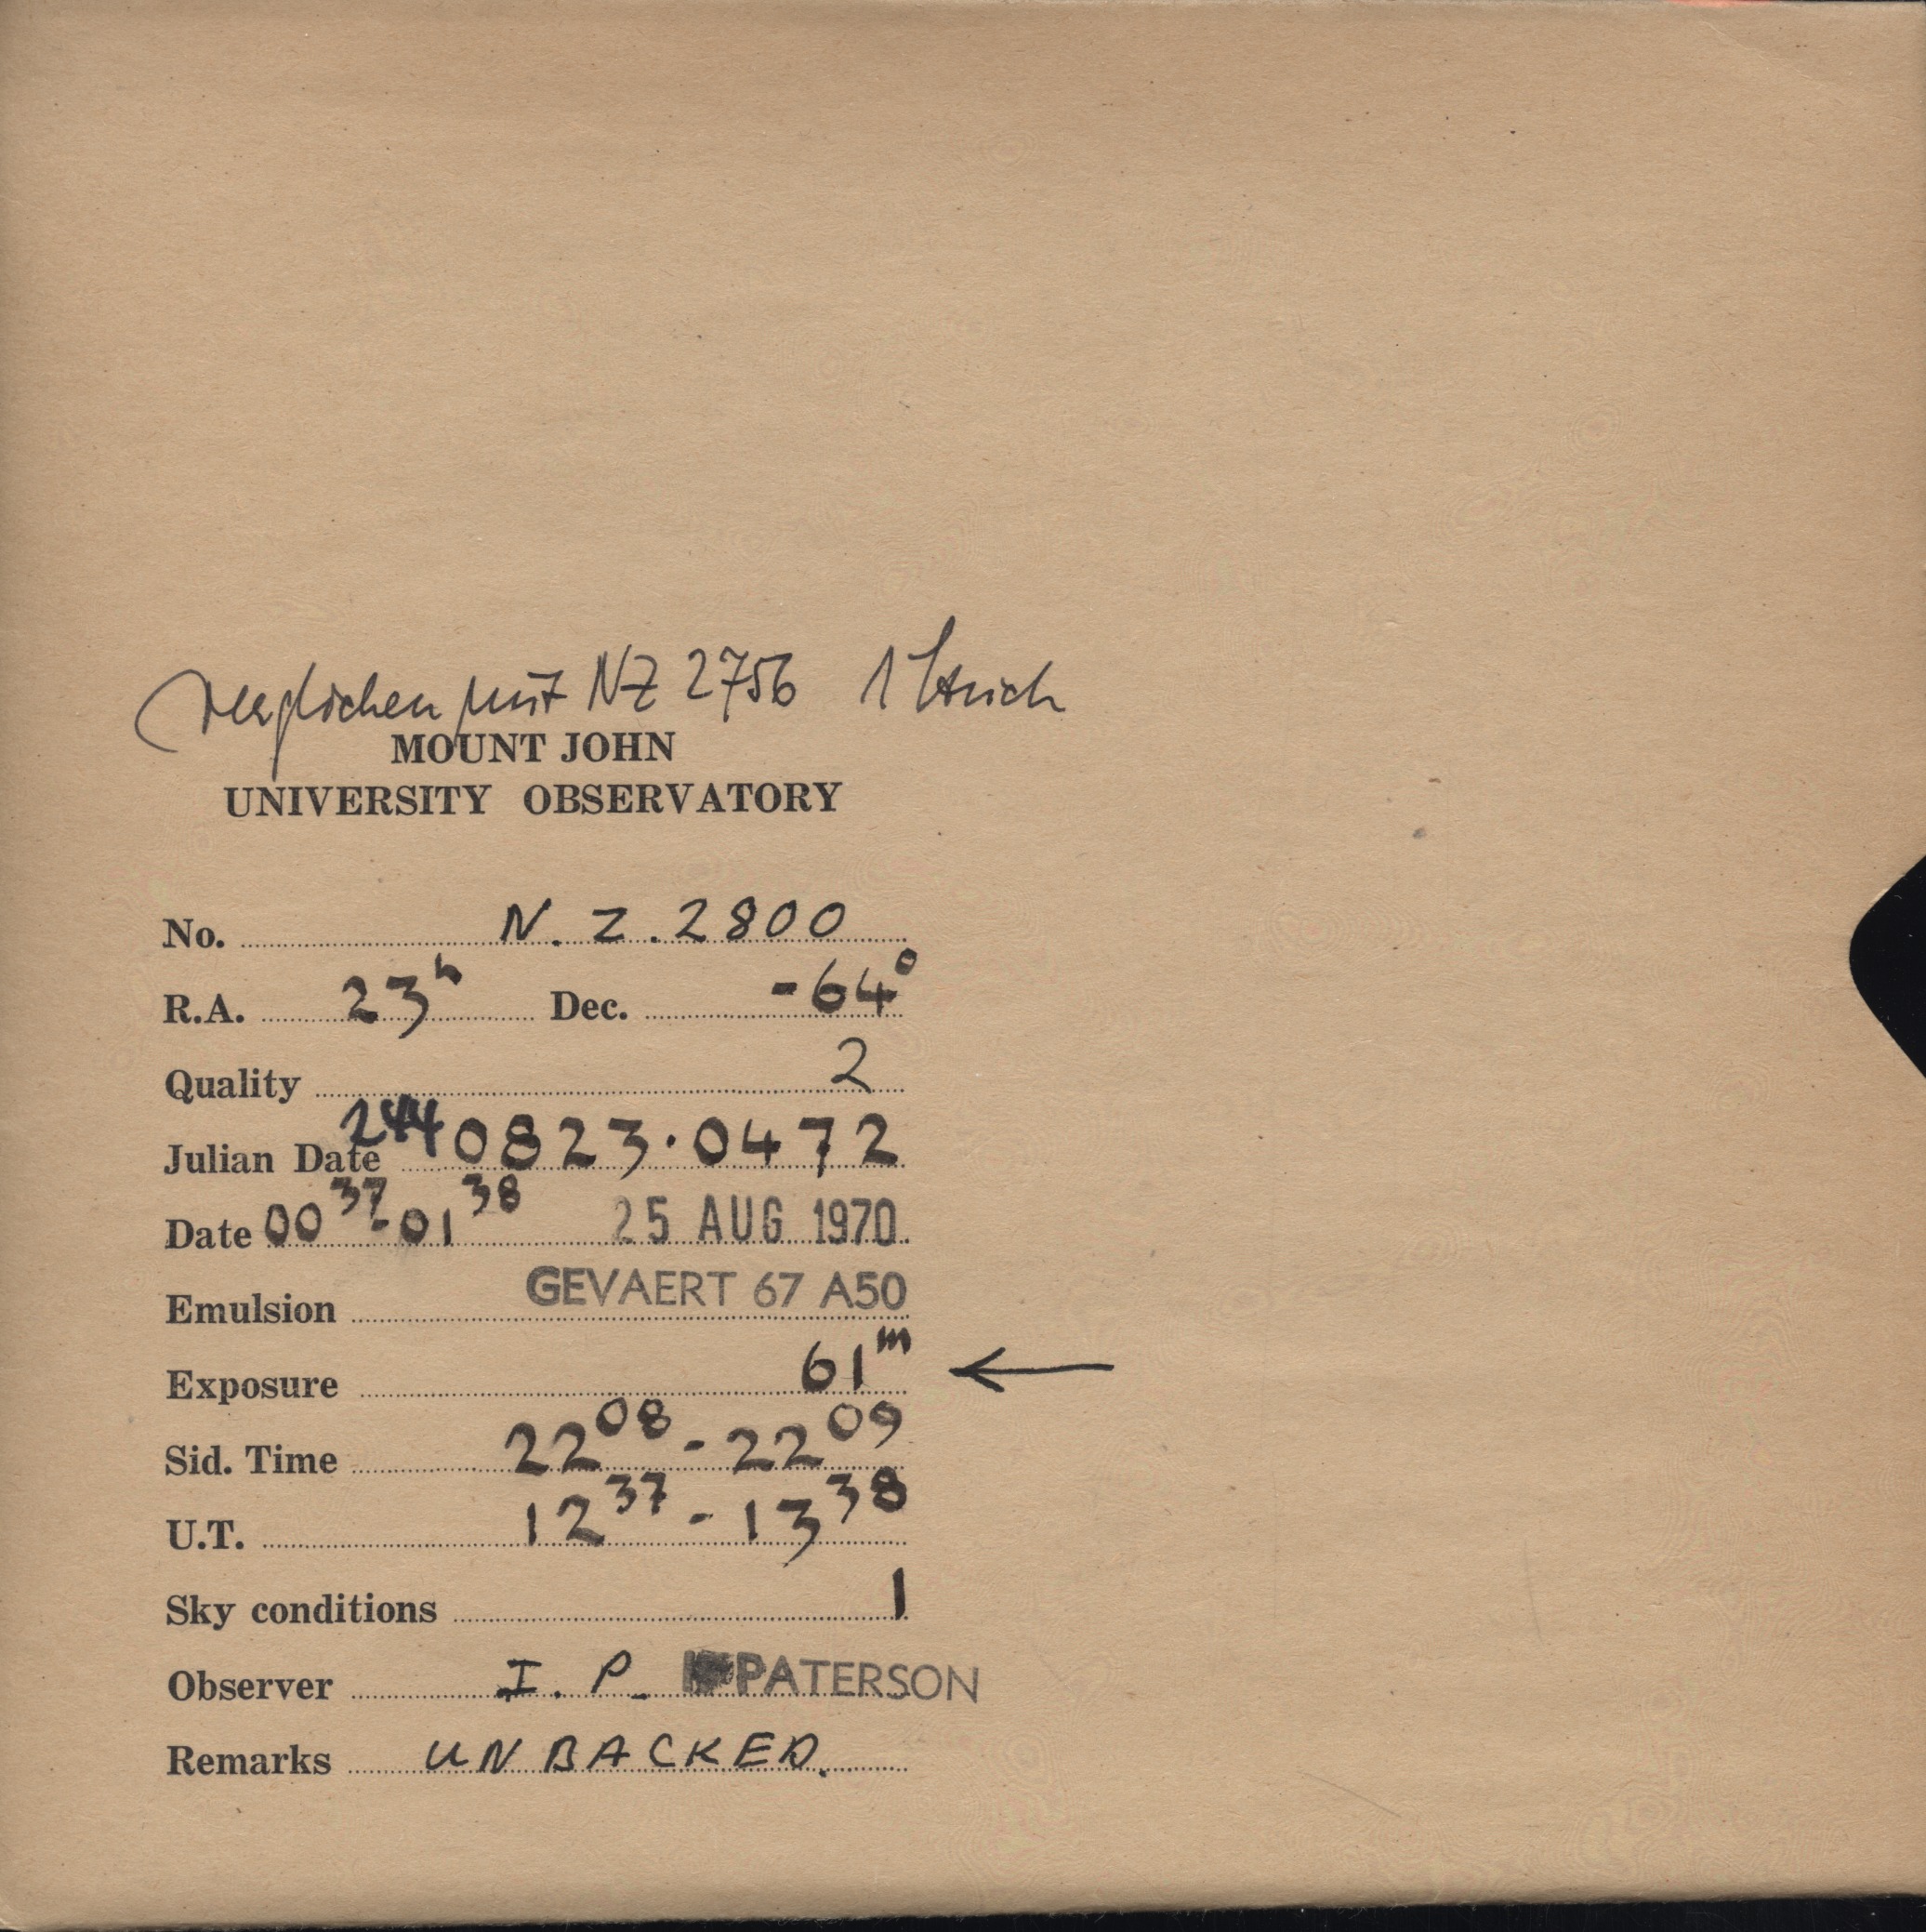 verglichen mit NZ 2756 1 Strich
MOUNT JOHN
UNIVERSITY OBSERVATORY
No. N. Z. 2800
R.A. 23h Dec. -64°
Quality 2
Julian Date 2440823.0472
Date 00 37 - 01 38 25 AUG 1970
Emulsion GEVAERT 67 A50
Exposure 61m ←
Sid. Time 22 08 - 22 09
U.T. 12 37 - 13 38
Sky conditions 1
Observer I. P. PATERSON
Remarks UNBACKED.